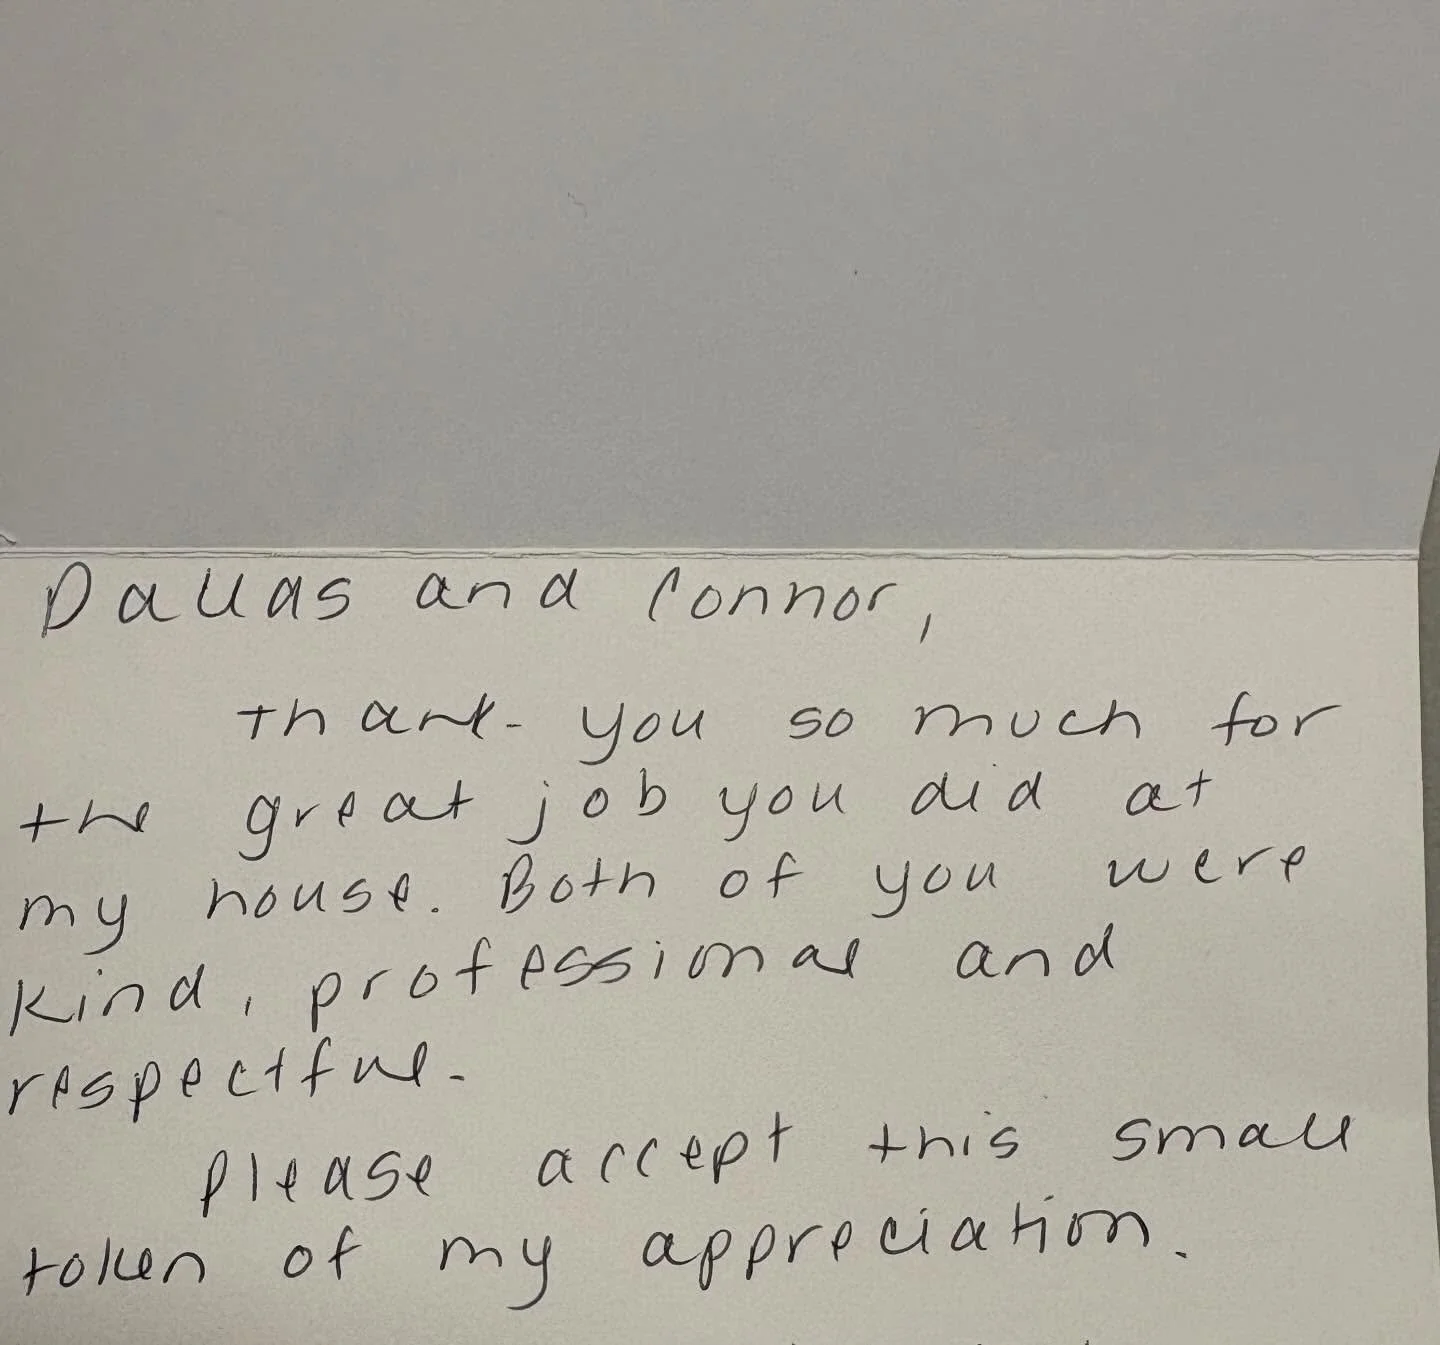 Dallas and Connor,
Thank-you so much for
the great job you did at
my house. Both of you were
kind, professional and
respectful.
Please accept this small
token of my appreciation.